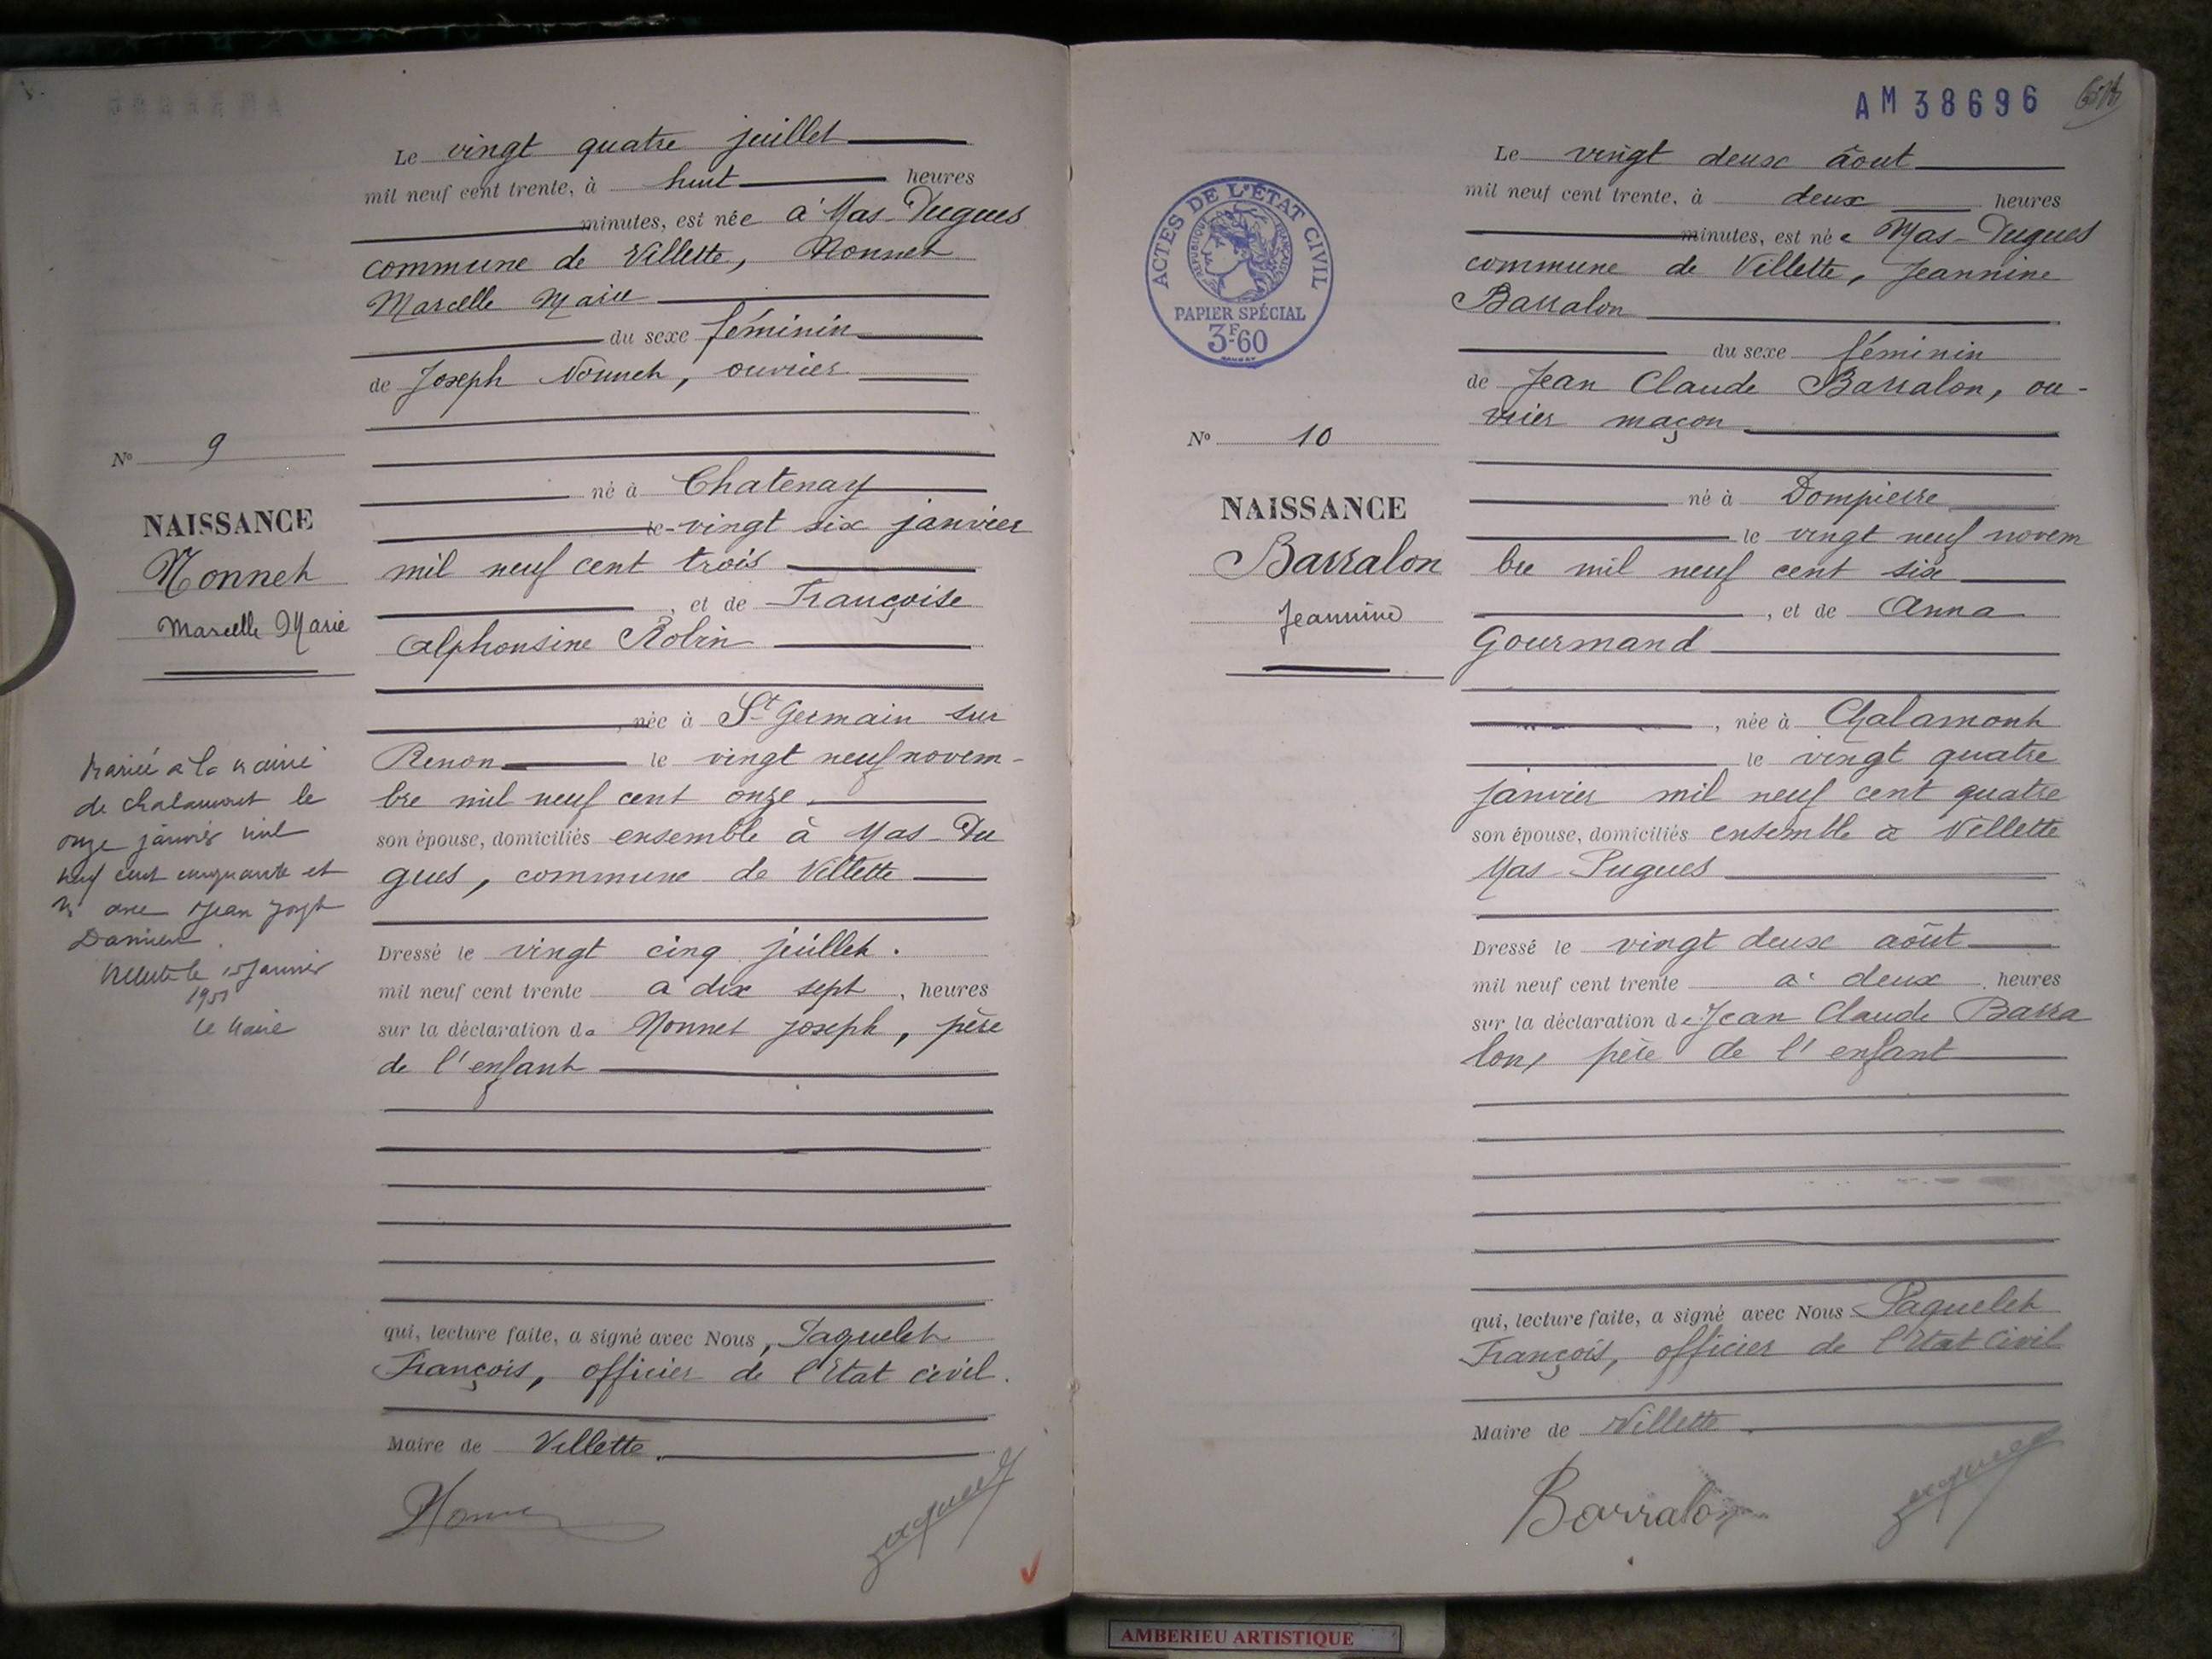 Le vingt quatre juillet
mil neuf cent trente, à huit heures
minutes, est née à Mas-Dugues
commune de Villette, Monnet
Marcelle Marie
du sexe féminin
de Joseph Monnet, ouvrier
né à Chatenay
le vingt six janvier
mil neuf cent trois
, et de Françoise
Alphonsine Robin
née à St Germain sur
Renon le vingt neuf novem-
bre mil neuf cent onze
son épouse, domiciliés ensemble à Mas-Du
gues, commune de Villette
Dressé le vingt cinq juillet.
mil neuf cent trente à dix sept, heures
sur la déclaration de Monnet Joseph, père
de l'enfant
qui, lecture faite, a signé avec Nous, Paquelet
François, officier de l'Etat civil.
Maire de Villette.
No 9
NAISSANCE
Monnet
Marcelle Marie
Mariée à la mairie
de Chalamont le
onze janvier mil
neuf cent cinquante et
un avec Jean Joseph
Villette le 15 Janvier
1951
Le Maire
AM38696
Le vingt deux âout
mil neuf cent trente, à deux heures
minutes, est née Mas-Dugues
commune de Villette, Jeannine
Barralon
du sexe féminin
de Jean Claude Barralon, ou-
vrier maçon
né à Dompierre
le vingt neuf novem
bre mil neuf cent six
, et de Anna
Gourmand
, née à Chalamont
le vingt quatre
janvier mil neuf cent quatre
son épouse, domiciliés ensemble à Villette
Mas-Dugues
Dressé le vingt deux aôut
mil neuf cent trente à deux heures
sur la déclaration de Jean Claude Barra
lon, père de l'enfant
qui, lecture faite, a signé avec Nous Paquelet
François, officier de l'Etat Civil
Maire de Villette
Barralon
ACTES DE L'ÉTAT CIVIL
RÉPUBLIQUE FRANÇAISE
PAPIER SPÉCIAL
3F.60
No 10
NAISSANCE
Barralon
Jeannine
AMBERIEU ARTISTIQUE